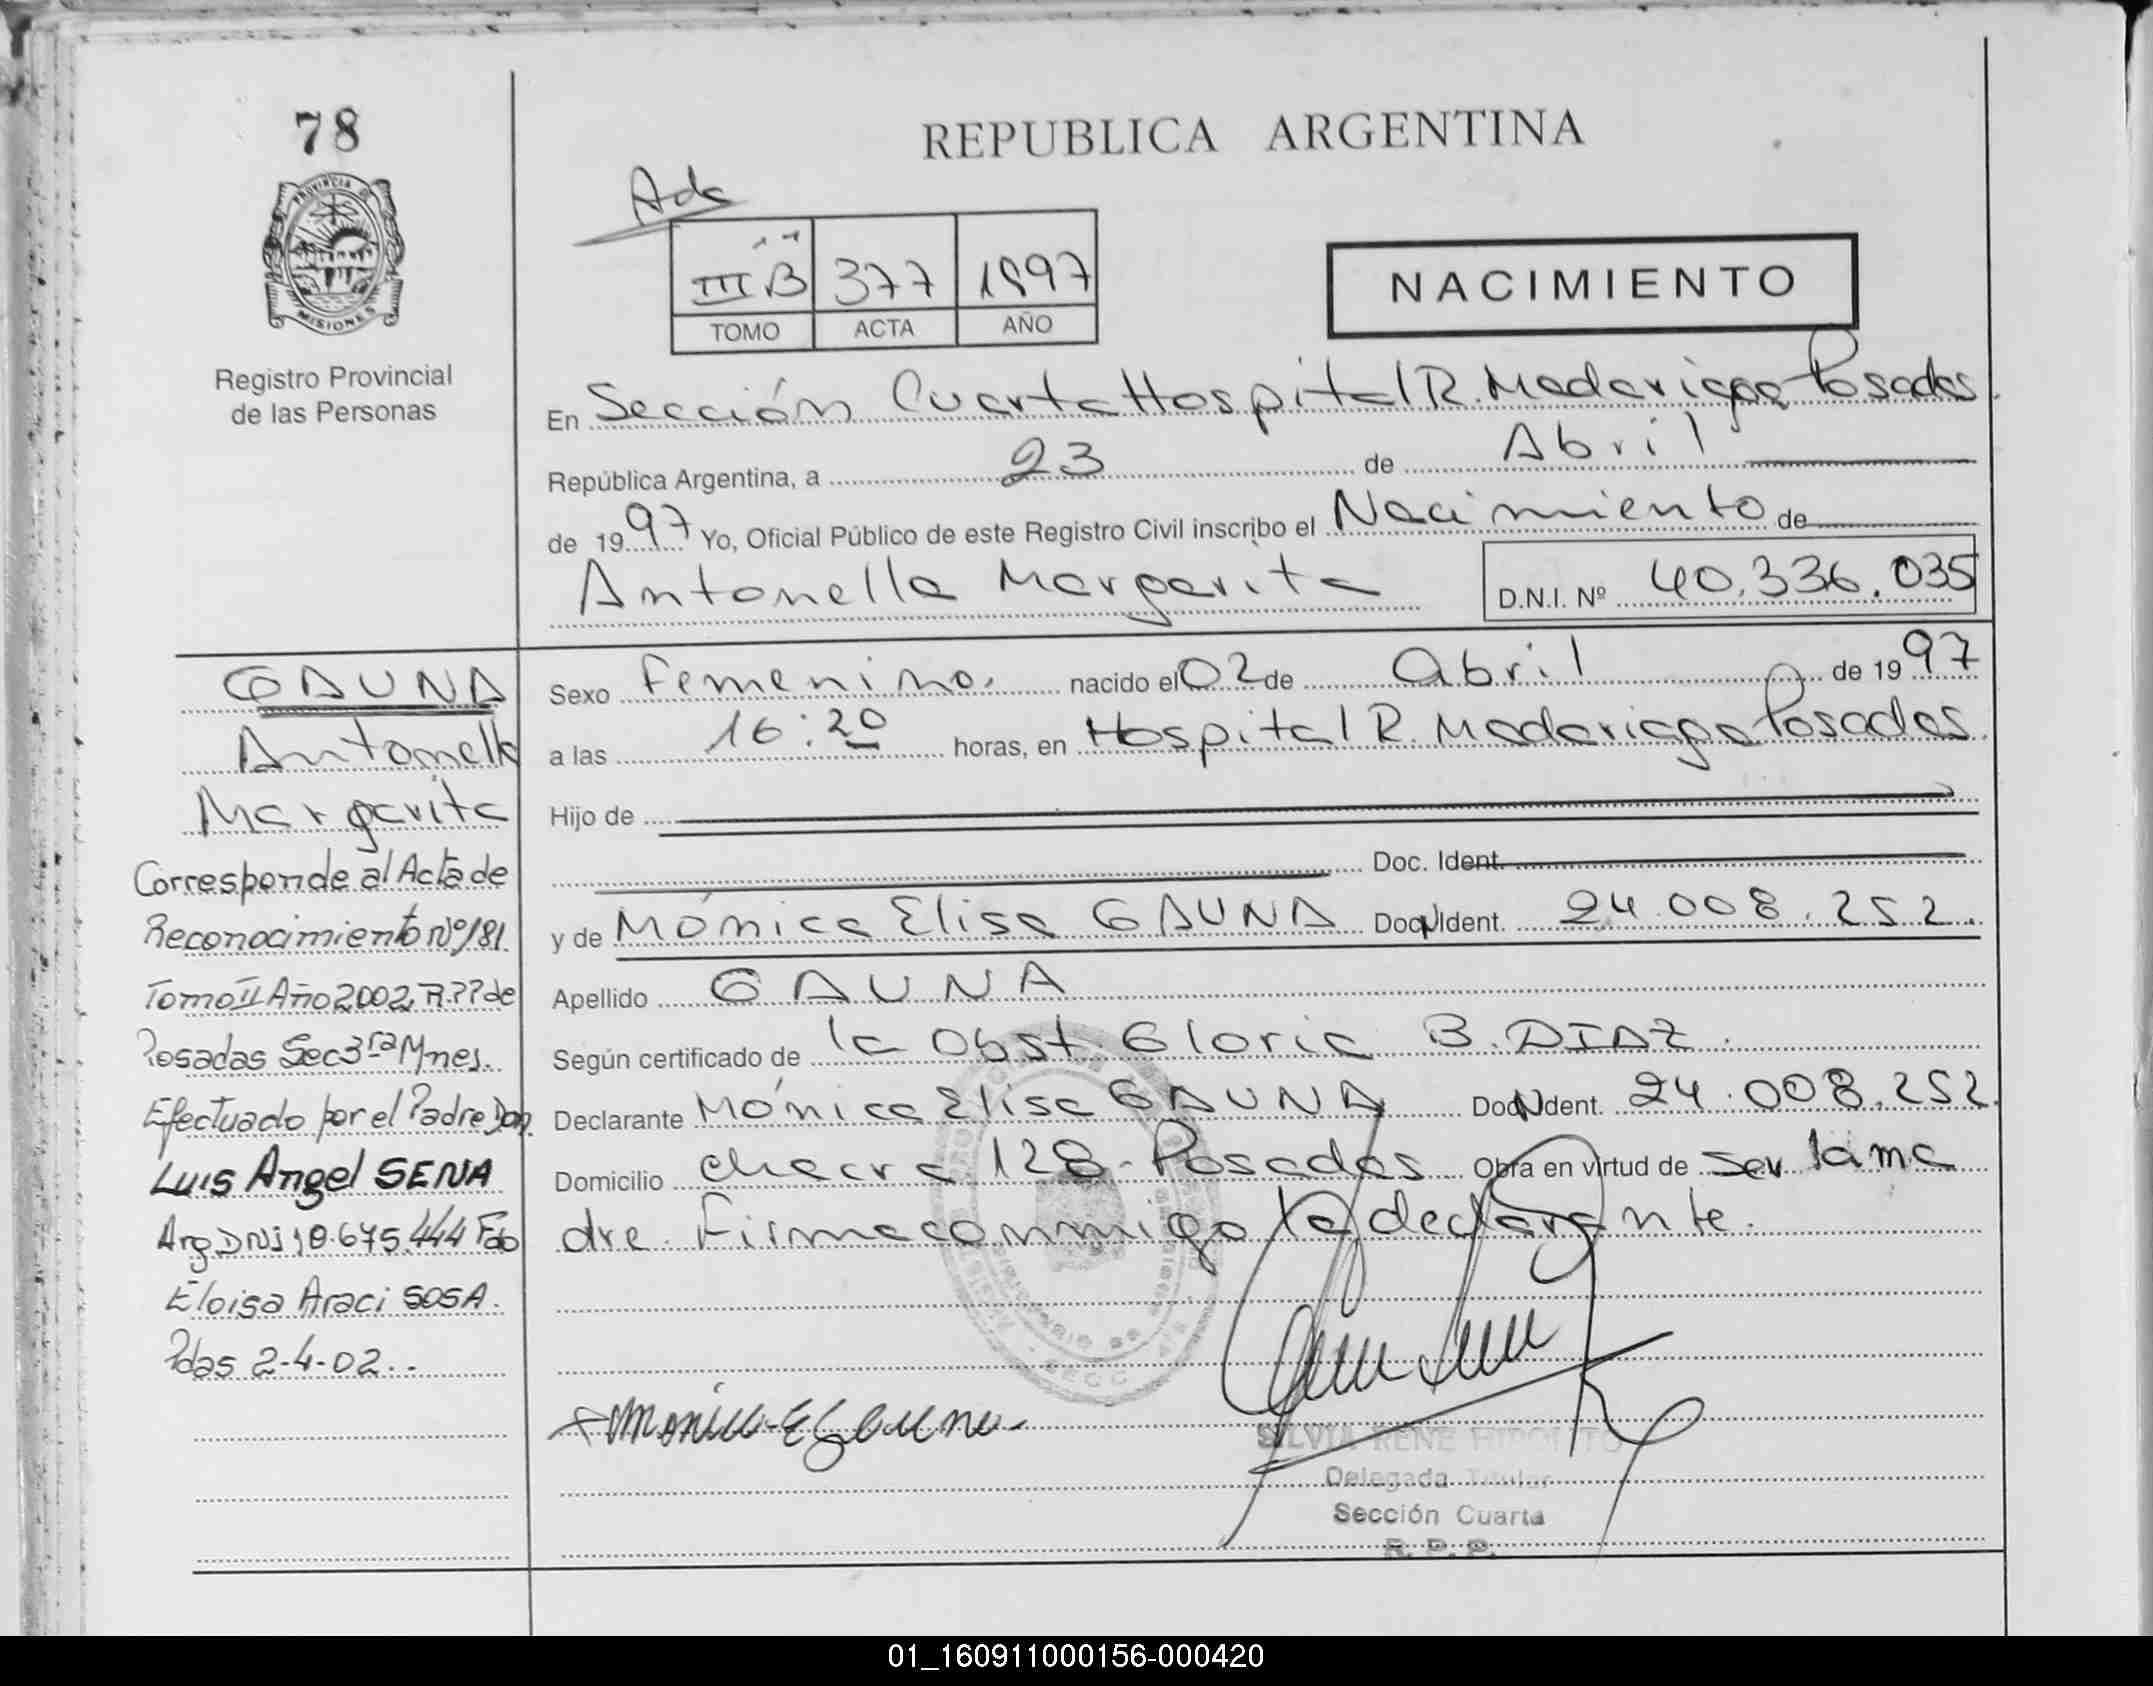 78
REPUBLICA ARGENTINA
PROVINCIA DE
MISIONES
Registro Provincial
de las Personas
III B 377 1997
TOMO ACTA AÑO
NACIMIENTO
En Sección Cuarta Hospital R. Madariaga Posadas.
República Argentina, a 23 de Abril
de 1997 Yo, Oficial Público de este Registro Civil inscribo el Nacimiento de
Antonella Margarita D.N.I. Nº 40.336.035
GAUNA
Antonella
Margarita
Corresponde al Acta de
Reconocimiento Nº 181
Tomo II Año 2002 de
Posadas Sec 3ra Mnes.
Efectuado por el Padre Don
Luis Angel SENA
Arg DNI 18.675.444
Eloisa Araci SOSA.
Pdas 2-4-02..
Sexo Femenino. nacido el 02 de Abril de 1997
a las 16:20 horas, en Hospital R. Madariaga Posadas.
Hijo de
Doc. Ident.
y de Mónica Elisa GAUNA Doc. Ident. 24.008.252.
Apellido GAUNA
Según certificado de la Obst. Gloria B. DIAZ.
Declarante Mónica Elisa GAUNA Doc. Ident. 24.008.252.
Domicilio chacra 128 - Posadas Obra en virtud de ser la ma
dre. Firma conmigo la declarante.
SILVIA RENE HIPOLITO
Delegada Titular
Sección Cuarta
R. P. P.
01_160911000156-000420